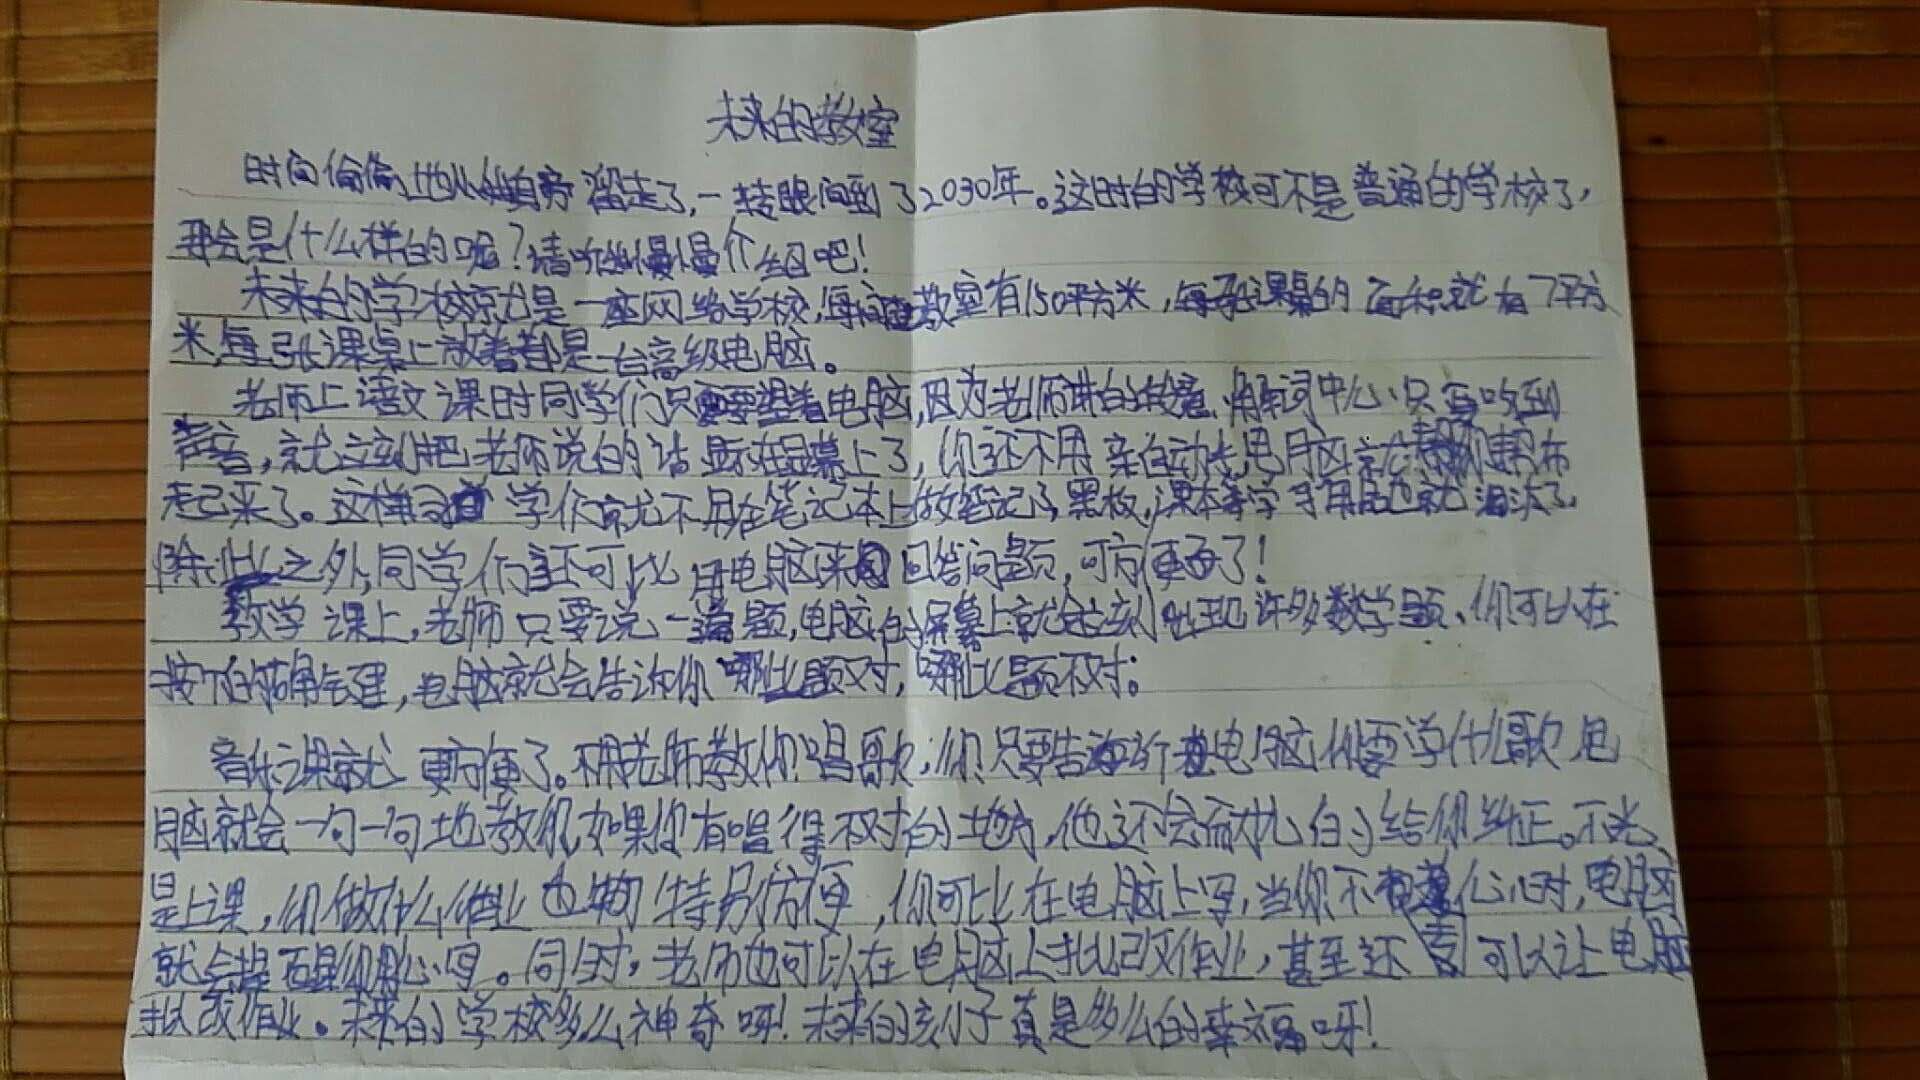 未来的教室
时间偷偷地从身旁溜走了,一转眼间到了2030年。这时的学校可不是普通的学校了,
那会是什么样的呢?请听我慢慢介绍吧!
未来的学校就是一座网络学校,每间教室有150平方米,每张课桌的面积就有7平方
米,每张课桌上放着都是一台高级电脑。
老师上语文课时同学们只要望着电脑,因为老师讲的 解词中心,只要吹到
声音,就立刻把老师说的话显示在屏幕上了,你还不用亲自动手,电脑就会帮你
起来了。这样 学们就不用在笔记本上做笔记了,黑板,课本等学习用品也就消失了,
除此之外,同学们还可比用电脑来回答问题,可方便了!
数学课上,老师只要说一道题,电脑的屏幕上就会立刻出现许多数学题,你可以在
按下的 键,电脑就会告诉你哪些题对,哪些题不对。
音乐课就更方便了。不用老师教你唱歌,你只要告诉 电脑你要学什么歌,电
脑就会一句一句地教你,如果你有唱得不对的地方,他还会耐心的给你纠正。不光
是上课,你做什么作业也 特别方便,你可比在电脑上写,当你不 心时,电脑
就会提醒你用心写。同时,老师也可以在电脑上批改作业,甚至还可以让电脑
批改作业。未来的学校多么神奇呀!未来的孩子真是多么的幸福呀!